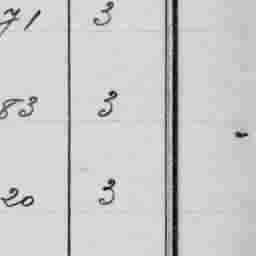 71 3
83 3
20 3